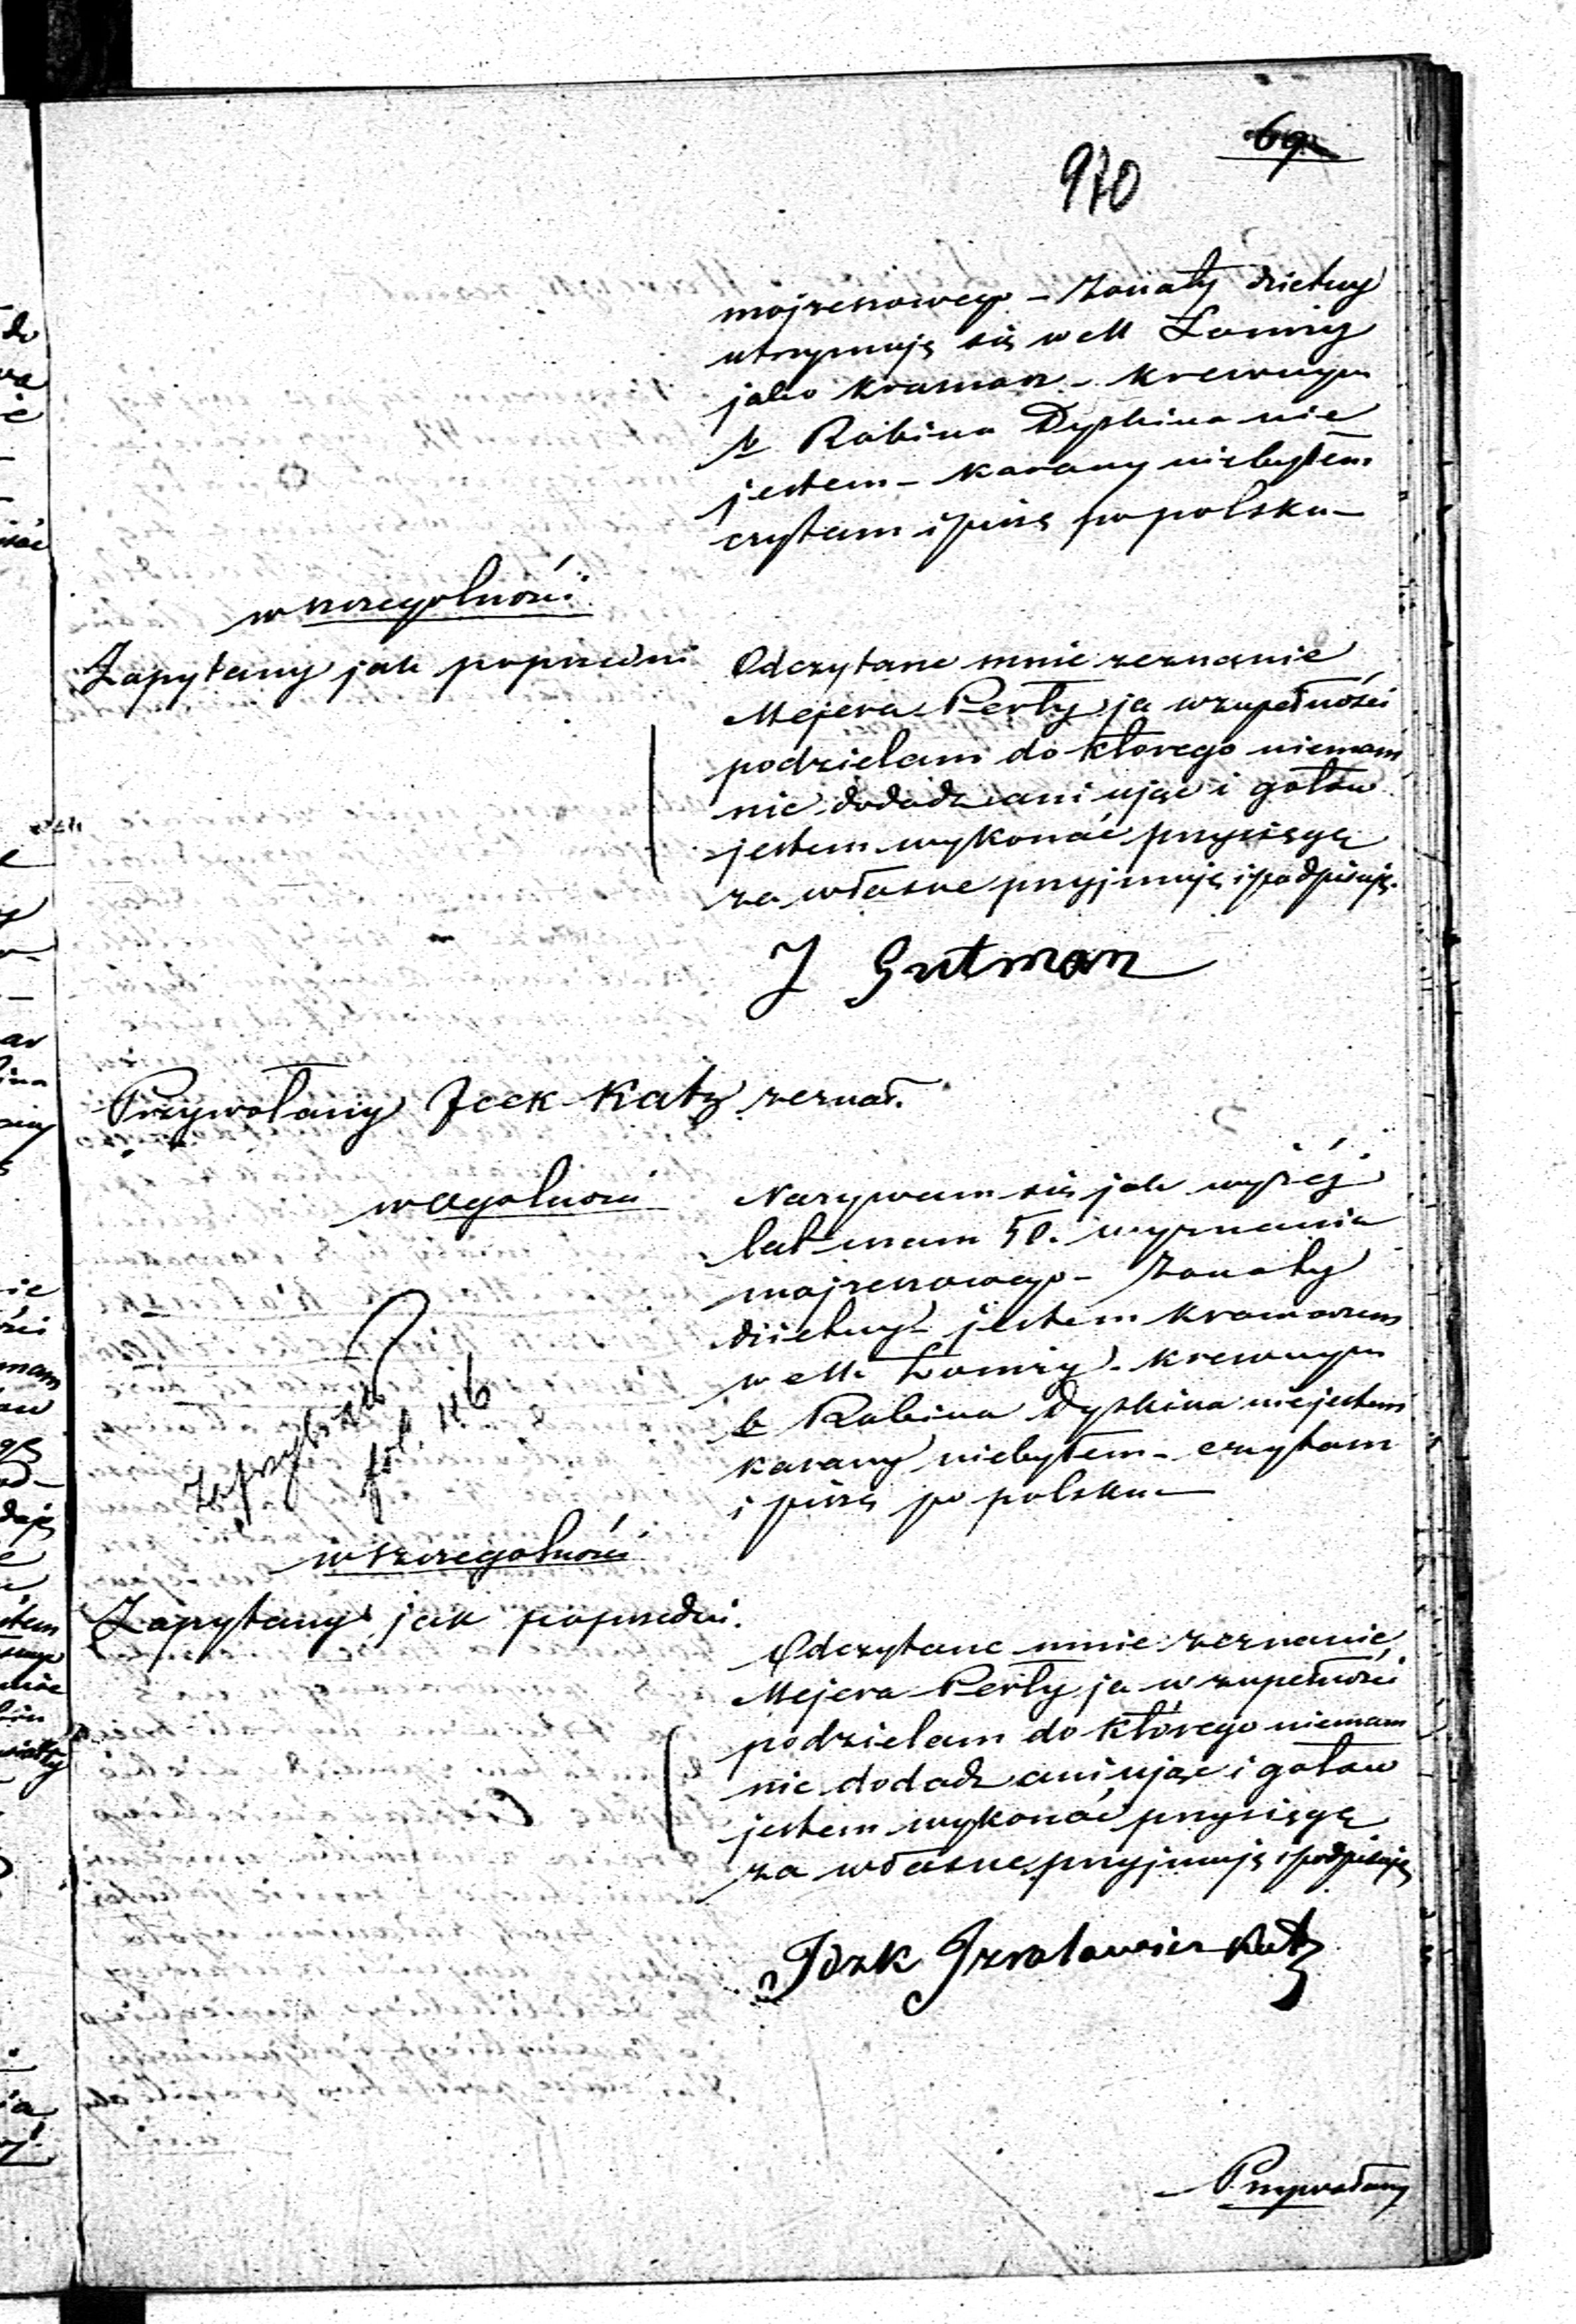 69
970
mojżeszowego – żonaty dzietny
utrzymuję się w M Łomży
jako kramarz – krewnym
b Rabina Dyskina nie
jestem – karany niebyłem
czytam i piszę po polsku –
w szczególności
Zapytany jak poprzedni
Odczytane mnie zeznanie
Mejera Perły ja w zupełności
podzielam do którego niemam
nic dodadz ani ująć i gotów
jestem wykonać przysięgę
za własne przyjmuję i podpisuję.
J Gutman
Przywołany Icek Katz zeznał.
w ogolności
Nazywam się jak wyżej
lat mam 50. wyznania
mojżeszowego – żonaty
dzietny – jestem kramarzem
w M. Łomży – krewnym
b Rabina Dyskina nie jestem
karany niebyłem – czytam
i piszę po polsku –
zaprzysiężony
fol. 116
w szczegolności
Zapytany jak poprzedni.
Odczytane mnie zeznanie
Mejera Perły ja w zupełności
podzielam do którego niemam
nic dodadz ani ująć i gotów
jestem wykonać przysięgę
za własne przyjmuję i podpisuję
Iczk Izralowicz Katz
Przywołany